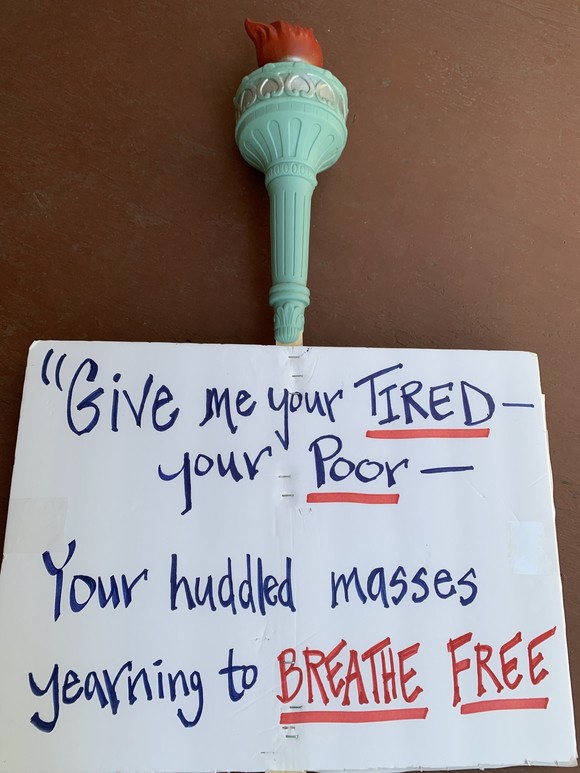 "Give me your TIRED—
your Poor—
Your huddled masses
yearning to BREATHE FREE